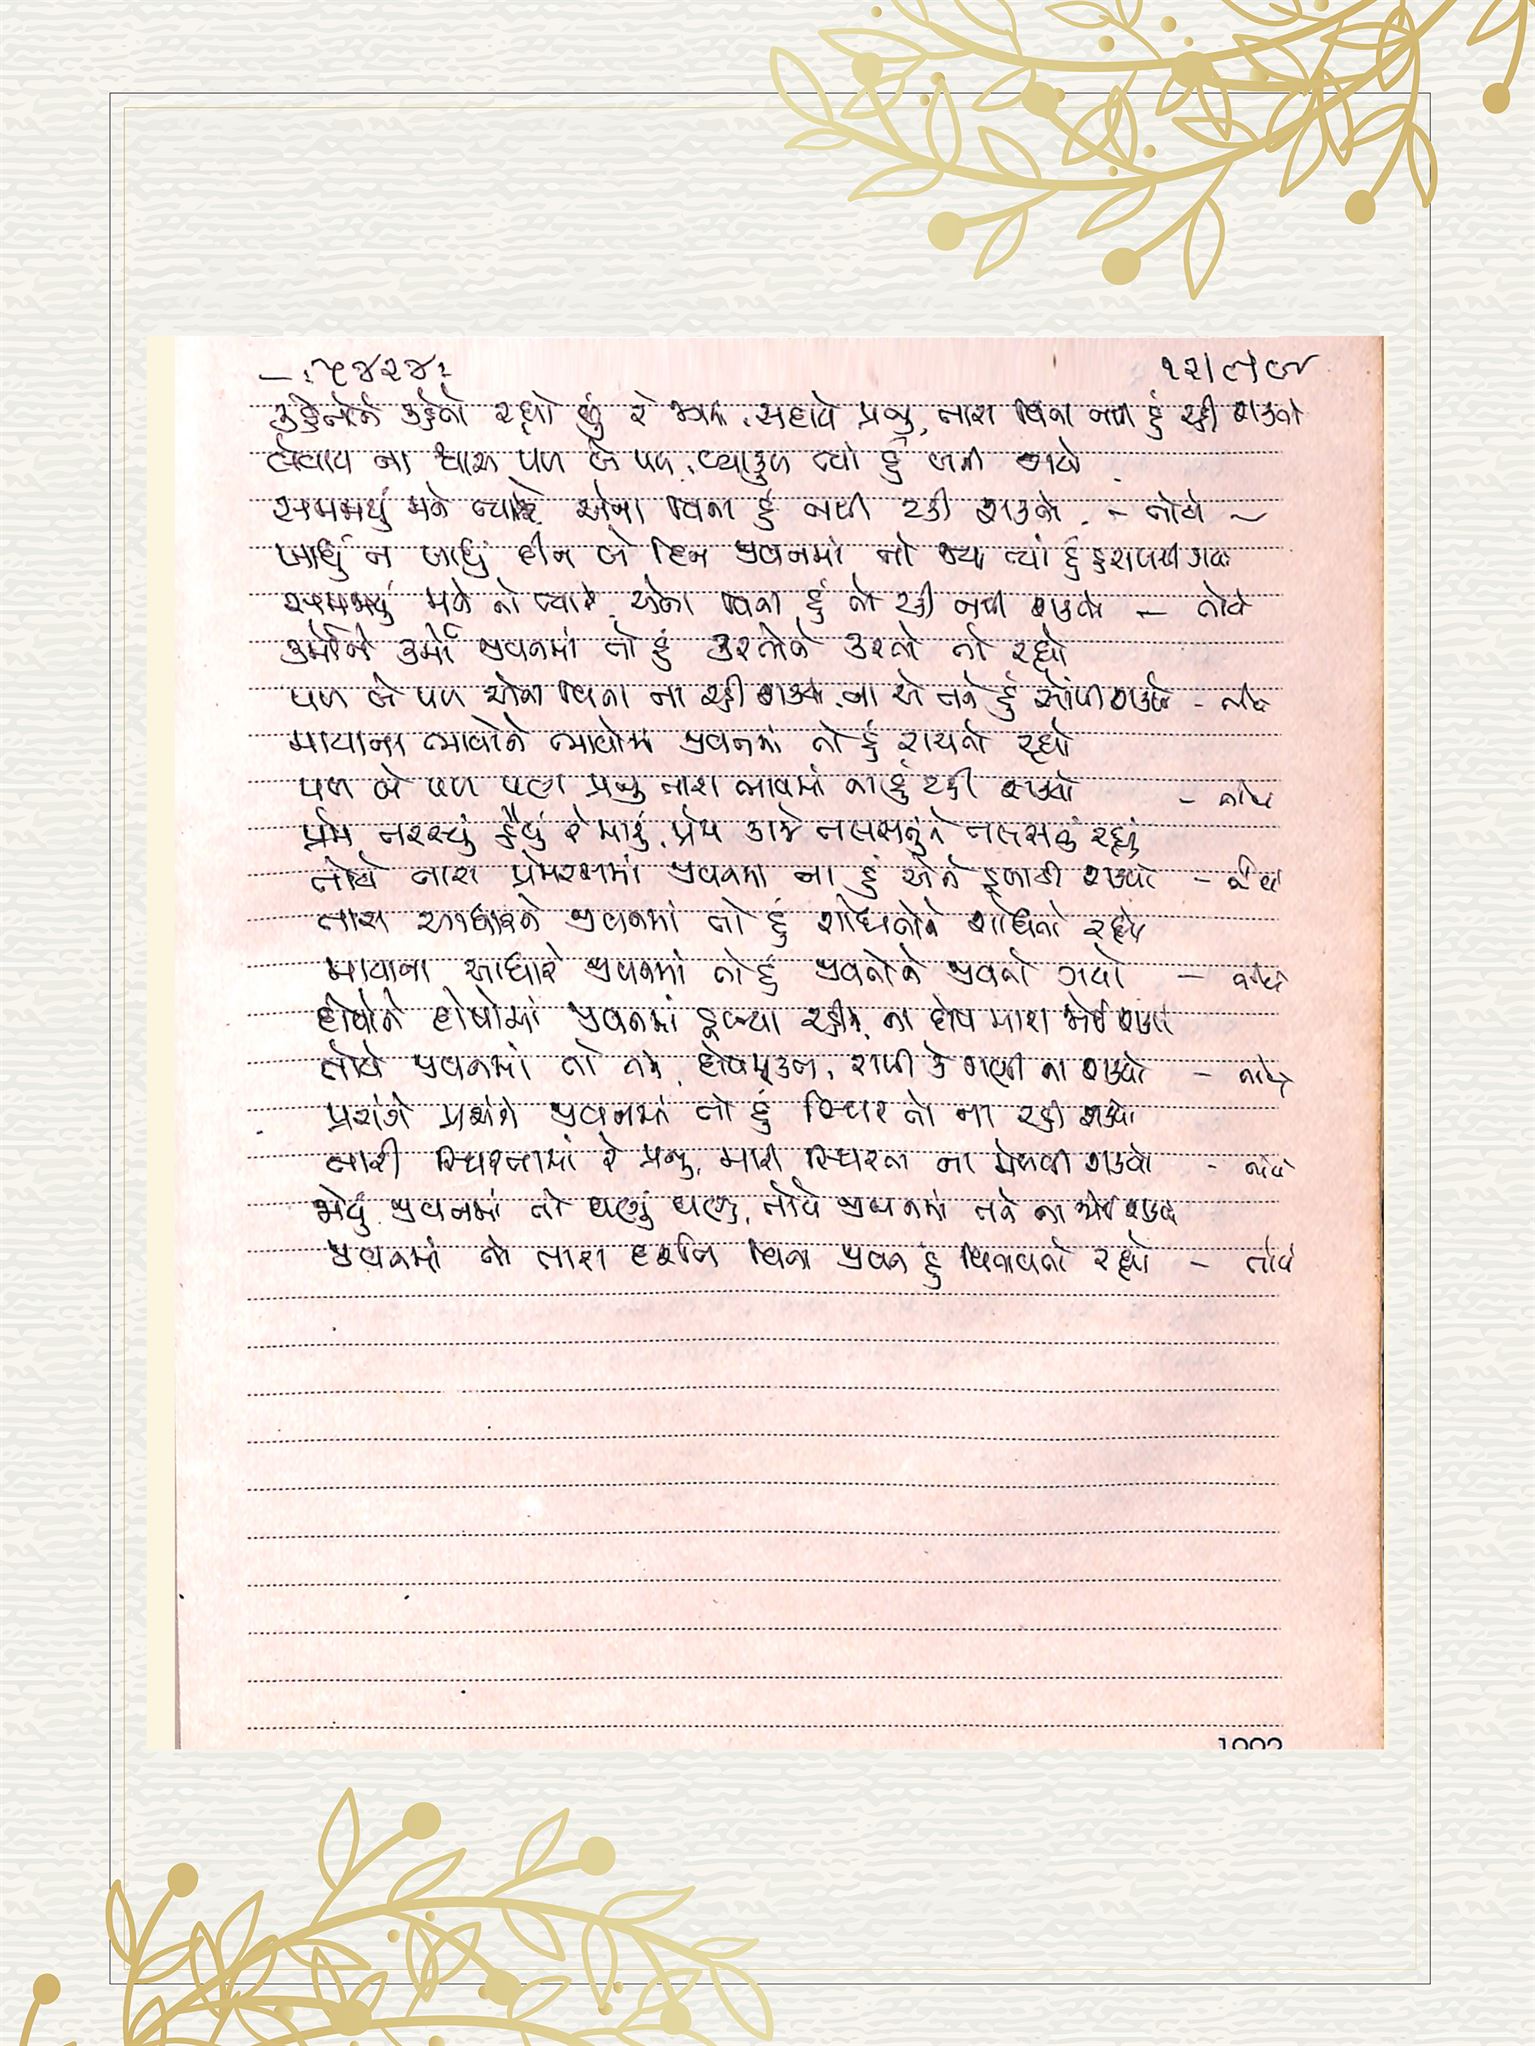 -: ૫૪૨૪:
કહેતોને કહેતો રહ્યો છું રે સદાયે પ્રભુ, તારા વિના નથી હું રહી શક્તો
લેવાય ના શ્વાસ પળ બે પળ, વ્યાકુળ ત્યાં હું બની જાઉં
સમજાયું મને ત્યારે એના વિના હું નથી રહી શક્તો - તોયે -
ખાધું ન ખાધું દીન બે દિન જીવનમાં તો જ્યાં ત્યાં હું
સમજાયું મને તો ત્યારે, એના વિના હું તો રહી નથી શક્તો - તોયે
કર્મોને કર્મો જીવનમાં તો હું કરતોને કરતો તો રહ્યો
પળ બે પળ એના વિના ના રહી શક્યો, ના એ તને હું સોંપી શક્યો - તોયે
માયાના ભાવોને ભાવોમાં જીવનમાં તો હું રાચતો રહ્યો
પળ બે પળ પણ પ્રભુ તારા ભાવમાં ના હું રહી શક્યો - તોયે
પ્રેમ તરસ્યું હૈયું રે મારું, પ્રેમ કાજે તલસતુંને તલસતું રહ્યું
તોયે તારા પ્રેમરસમાં જીવનમાં ના હું એને ડૂબાડી શક્યો - તોયે
તારા આધારને જીવનમાં તો હું શોધતોને શોધતો રહ્યો
માયાના આધારે જીવનમાં તો હું જીવતોને જીવતો ગયો - તોયે
દોષોને દોષોમાં જીવનમાં ડૂબ્યા રહીને, ના દોષ મારા જોઈ શક્યો
તોયે જીવનમાં તો તને, દોષમુક્ત, રાખી કે ગણી ના શક્યો - તોયે
પ્રસંગે પ્રસંગે જીવનમાં તો હું સ્થિર તો ના રહી શક્યો
તારી સ્થિરતામાં રે પ્રભુ, મારી સ્થિરતા ના મેળવી શક્યો - તોયે
જોયું જીવનમાં તો ઘણું ઘણું, તોયે જીવનમાં તને ના જોઈ શક્યો
જીવનમાં તો તારા દર્શન વિના જીવન હું વિતાવતો રહ્યો - તોયે